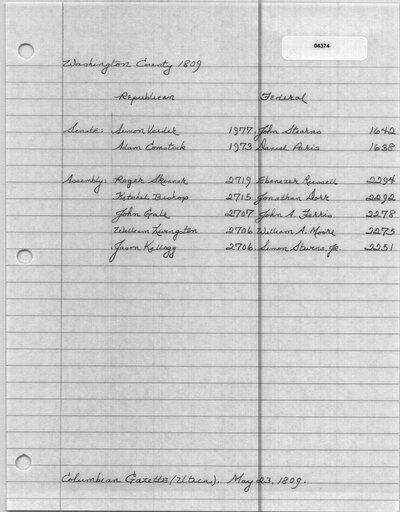 04374
Washington County 1809
Republican Federal
Senate: Simon Veeder 1977 John Stearns 1642
Adam Comstock 1973 Daniel Paris 1638
Assembly: Roger Skinner 2719 Ebenezer Russell 2294
Kitchel Bishop 2715 Jonathan Dorr 2292
John Gale 2707 John A. Ferris 2278
William Livingston 2706 William A. Moore 2273
Jason Kellogg 2706 Simon Stevens, Jr. 2251
Columbian Gazette (Utica). May 23, 1809.